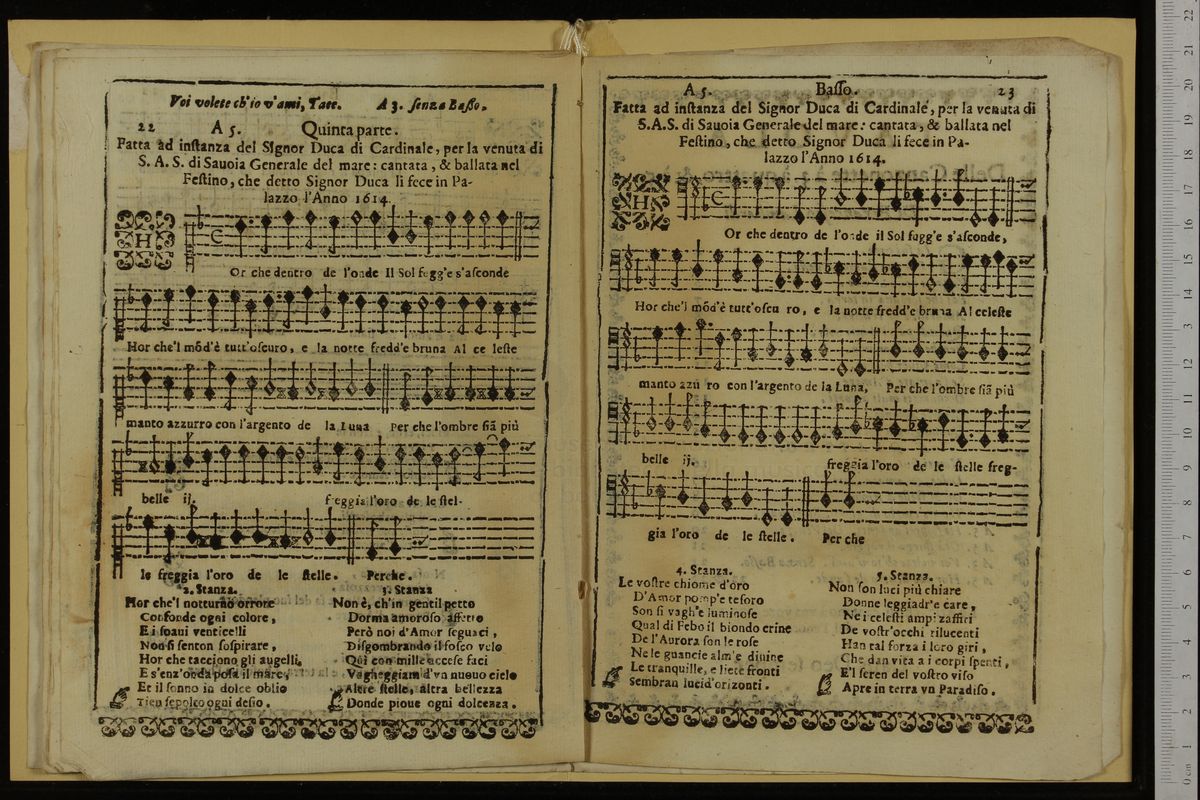 Voi volete ch'io v'ami, Tate. A 3. senza Baſſo.
22 A 5. Quinta parte.
Fatta ad inſtanza del Signor Duca di Cardinale, per la venuta di
S. A. S. di Sauoia Generale del mare: cantata, & ballata nel
Feſtino, che detto Signor Duca li fece in Pa-
lazzo l'Anno 1614
H
Or che dentro de l'onde Il Sol fugg'e s'aſconde
Hor che'l mōd'è tutt'oſcuro, e la notte fredd'e bruna Al ce leſte
manto azzurro con l'argento de la Luna Per che l'ombre ſiā più
belle ij. freggia l'oro de le ſtel-
le freggia l'oro de le ſtelle. Perche.
2. Stanza.
Hor che'l notturno orrore
Confonde ogni colore,
E i ſoaui venticelli
Non ſi ſenton ſoſpirare,
Hor che tacciono gli augelli,
E s'enz'onda poſa il mare,
Et il ſonno in dolce oblio
Tien ſepolco ogni deſio.
3. Stanza
Non è, ch'in gentil petto
Dorma amoroſo affetto
Però noi d'Amor ſeguaci,
Diſgombrando il foſco velo
Qui con mille acceſe faci
Vagheggiam d'vn nuouo cielo
Altre ſtelle, altra bellezza
Donde pioue ogni dolcezza.
A 5. Baſſo. 23
Fatta ad inſtanza del Signor Duca di Cardinale, per la venuta di
S.A.S. di Sauoia Generale del mare: cantata, & ballata nel
Feſtino, che detto Signor Duca li fece in Pa-
lazzo l'Anno 1614.
H
Or che dentro de l'onde il Sol fugg'e s'aſconde,
Hor che'l mōd'è tutt'oſcu ro, e la notte fredd'e bruna Al celeſte
manto azzu ro con l'argento de la Luna, Per che l'ombre ſiā più
belle ij. freggia l'oro de le ſtelle freg-
gia l'oro de le ſtelle. Per che
4. Stanza.
Le voſtre chiome d'oro
D'Amor pomp'e teſoro
Son ſi vagh'e luminoſe
Qual di Febo il biondo crine
De l'Aurora ſon le roſe
Ne le guancie alm'e diuine
Le tranquille, e liete fronti
Sembran lucid'orizonti.
5. Stanza.
Non ſon luci più chiare
Donne leggiadr'e care,
Ne i celeſti ampi zaffiri
De voſtr'occhi rilucenti
Han tal forza i loro giri,
Che dan vita a i corpi ſpenti,
E'l ſeren del voſtro viſo
Apre in terra vn Paradiſo.
0 cm 1 2 3 4 5 6 7 8 9 10 11 12 13 14 15 16 17 18 19 20 21 22